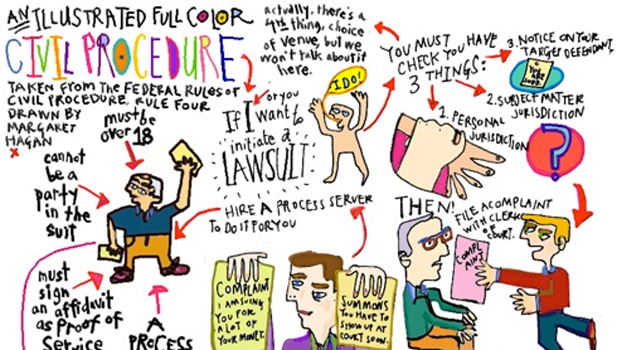 AN ILLUSTRATED FULL COLOR
CIVIL PROCEDURE
TAKEN FROM THE FEDERAL RULES OF
CIVIL PROCEDURE, RULE FOUR
DRAWN BY
MARGARET
HAGAN
must be
over 18
cannot
be a
party
in the
suit
must
sign
an affidavit
as Proof of
Service
A
PROCESS
actually, there's a
4th thing, choice
of venue, but we
won't talk about it
here.
I DO!
If I or you
want to
initiate a
LAWSUIT
YOU MUST
CHECK YOU HAVE
3 THINGS:
1. PERSONAL
JURISDICTION
2. SUBJECT MATTER
JURISDICTION
3. NOTICE ON YOUR
TARGET DEFENDANT.
?
THEN!
FILE A COMPLAINT
WITH CLERK
OF
COURT.
COMPL
AINT
HIRE A PROCESS SERVER
TO DO IT FOR YOU
COMPLAINT
I AM SUING
YOU FOR
A LOT OF
YOUR MONEY.
SUMMONS
YOU HAVE TO
SHOW UP AT
COURT SOON.